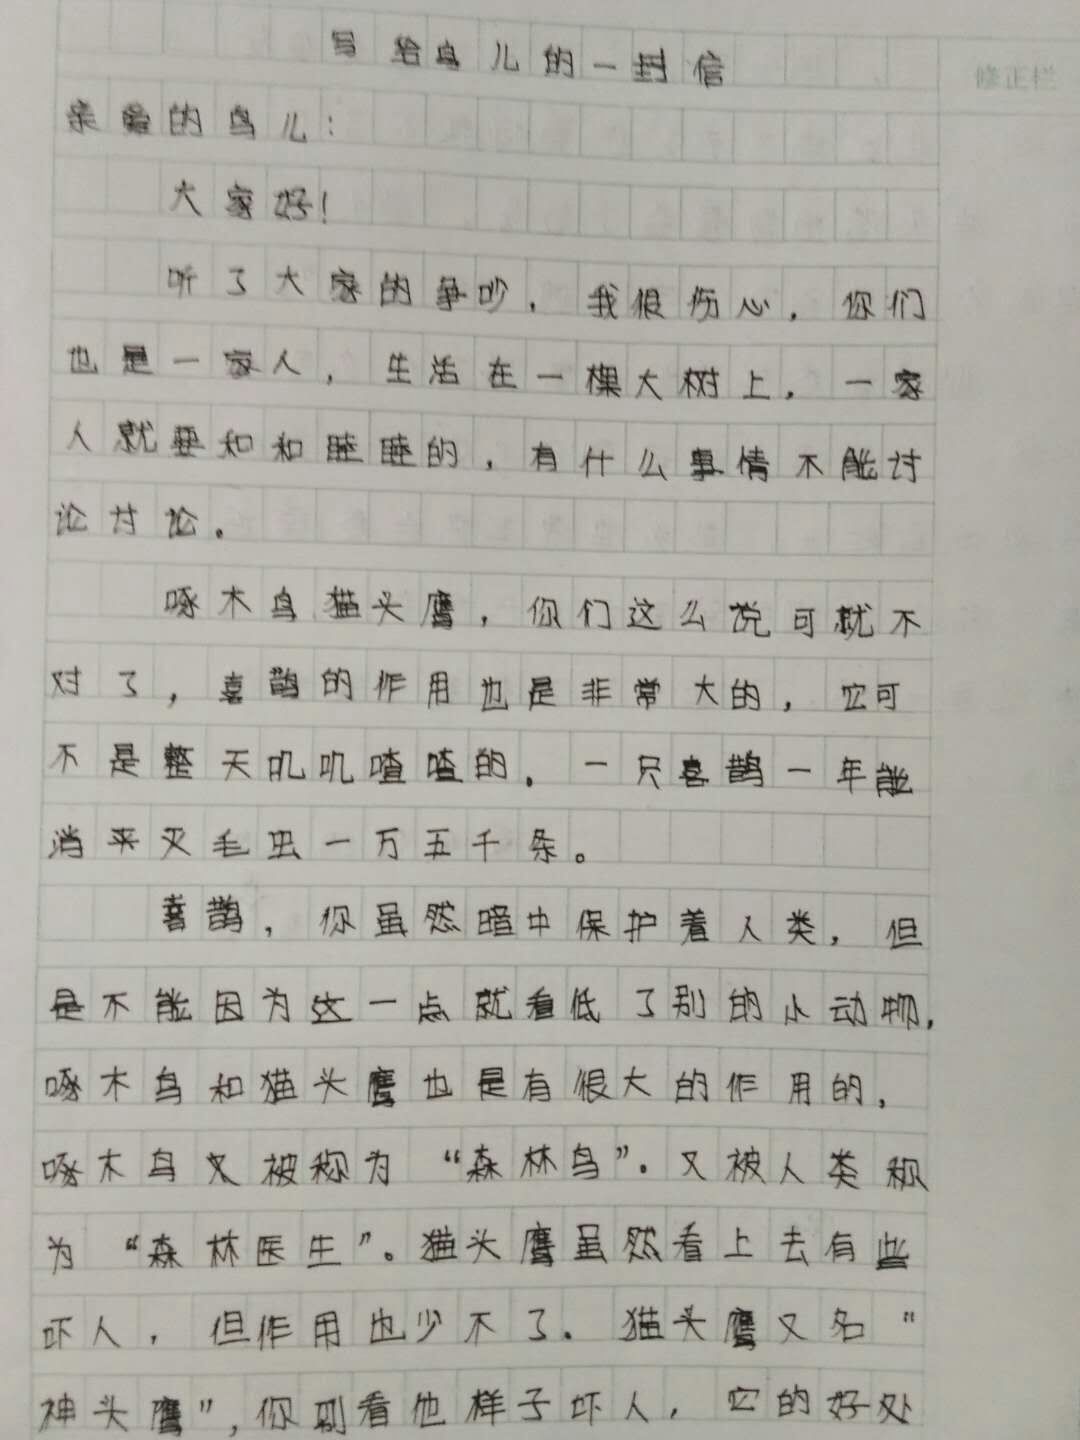 写给鸟儿的一封信
修正栏
亲爱的鸟儿：
大家好！
听了大家的争吵，我很伤心，你们
也是一家人，生活在一棵大树上，一家
人就要和和睦睦的，有什么事情不能讨
论讨论。
啄木鸟猫头鹰，你们这么说可就不
对了，喜鹊的作用也是非常大的，它可
不是整天叽叽喳喳的。一只喜鹊一年能
消灭毛虫一万五千条。
喜鹊，你虽然暗中保护着人类，但
是不能因为这一点就看低了别的小动物，
啄木鸟和猫头鹰也是有很大的作用的，
啄木鸟又被称为“森林鸟”。又被人类称
为“森林医生”。猫头鹰虽然看上去有些
吓人，但作用也少不了。猫头鹰又名“
神头鹰”，你别看他样子吓人，它的好处